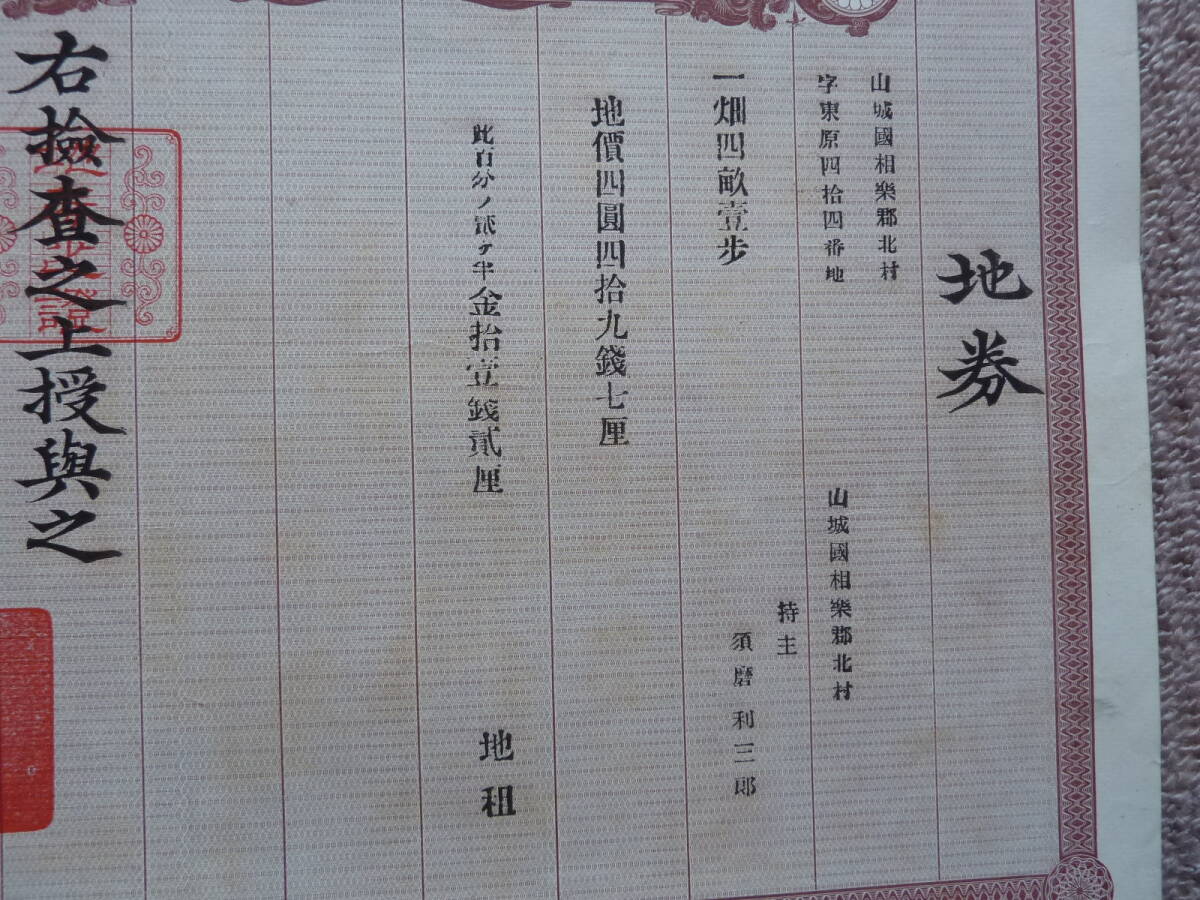 地券
山城國相樂郡北村
字東原四拾四番地
山城國相樂郡北村
持主
須磨利三郎
一畑四畝壹步
地價四圓四拾九錢七厘
此百分ノ貳ケ半金拾壹錢貳厘
地租
右撿査之上授與之